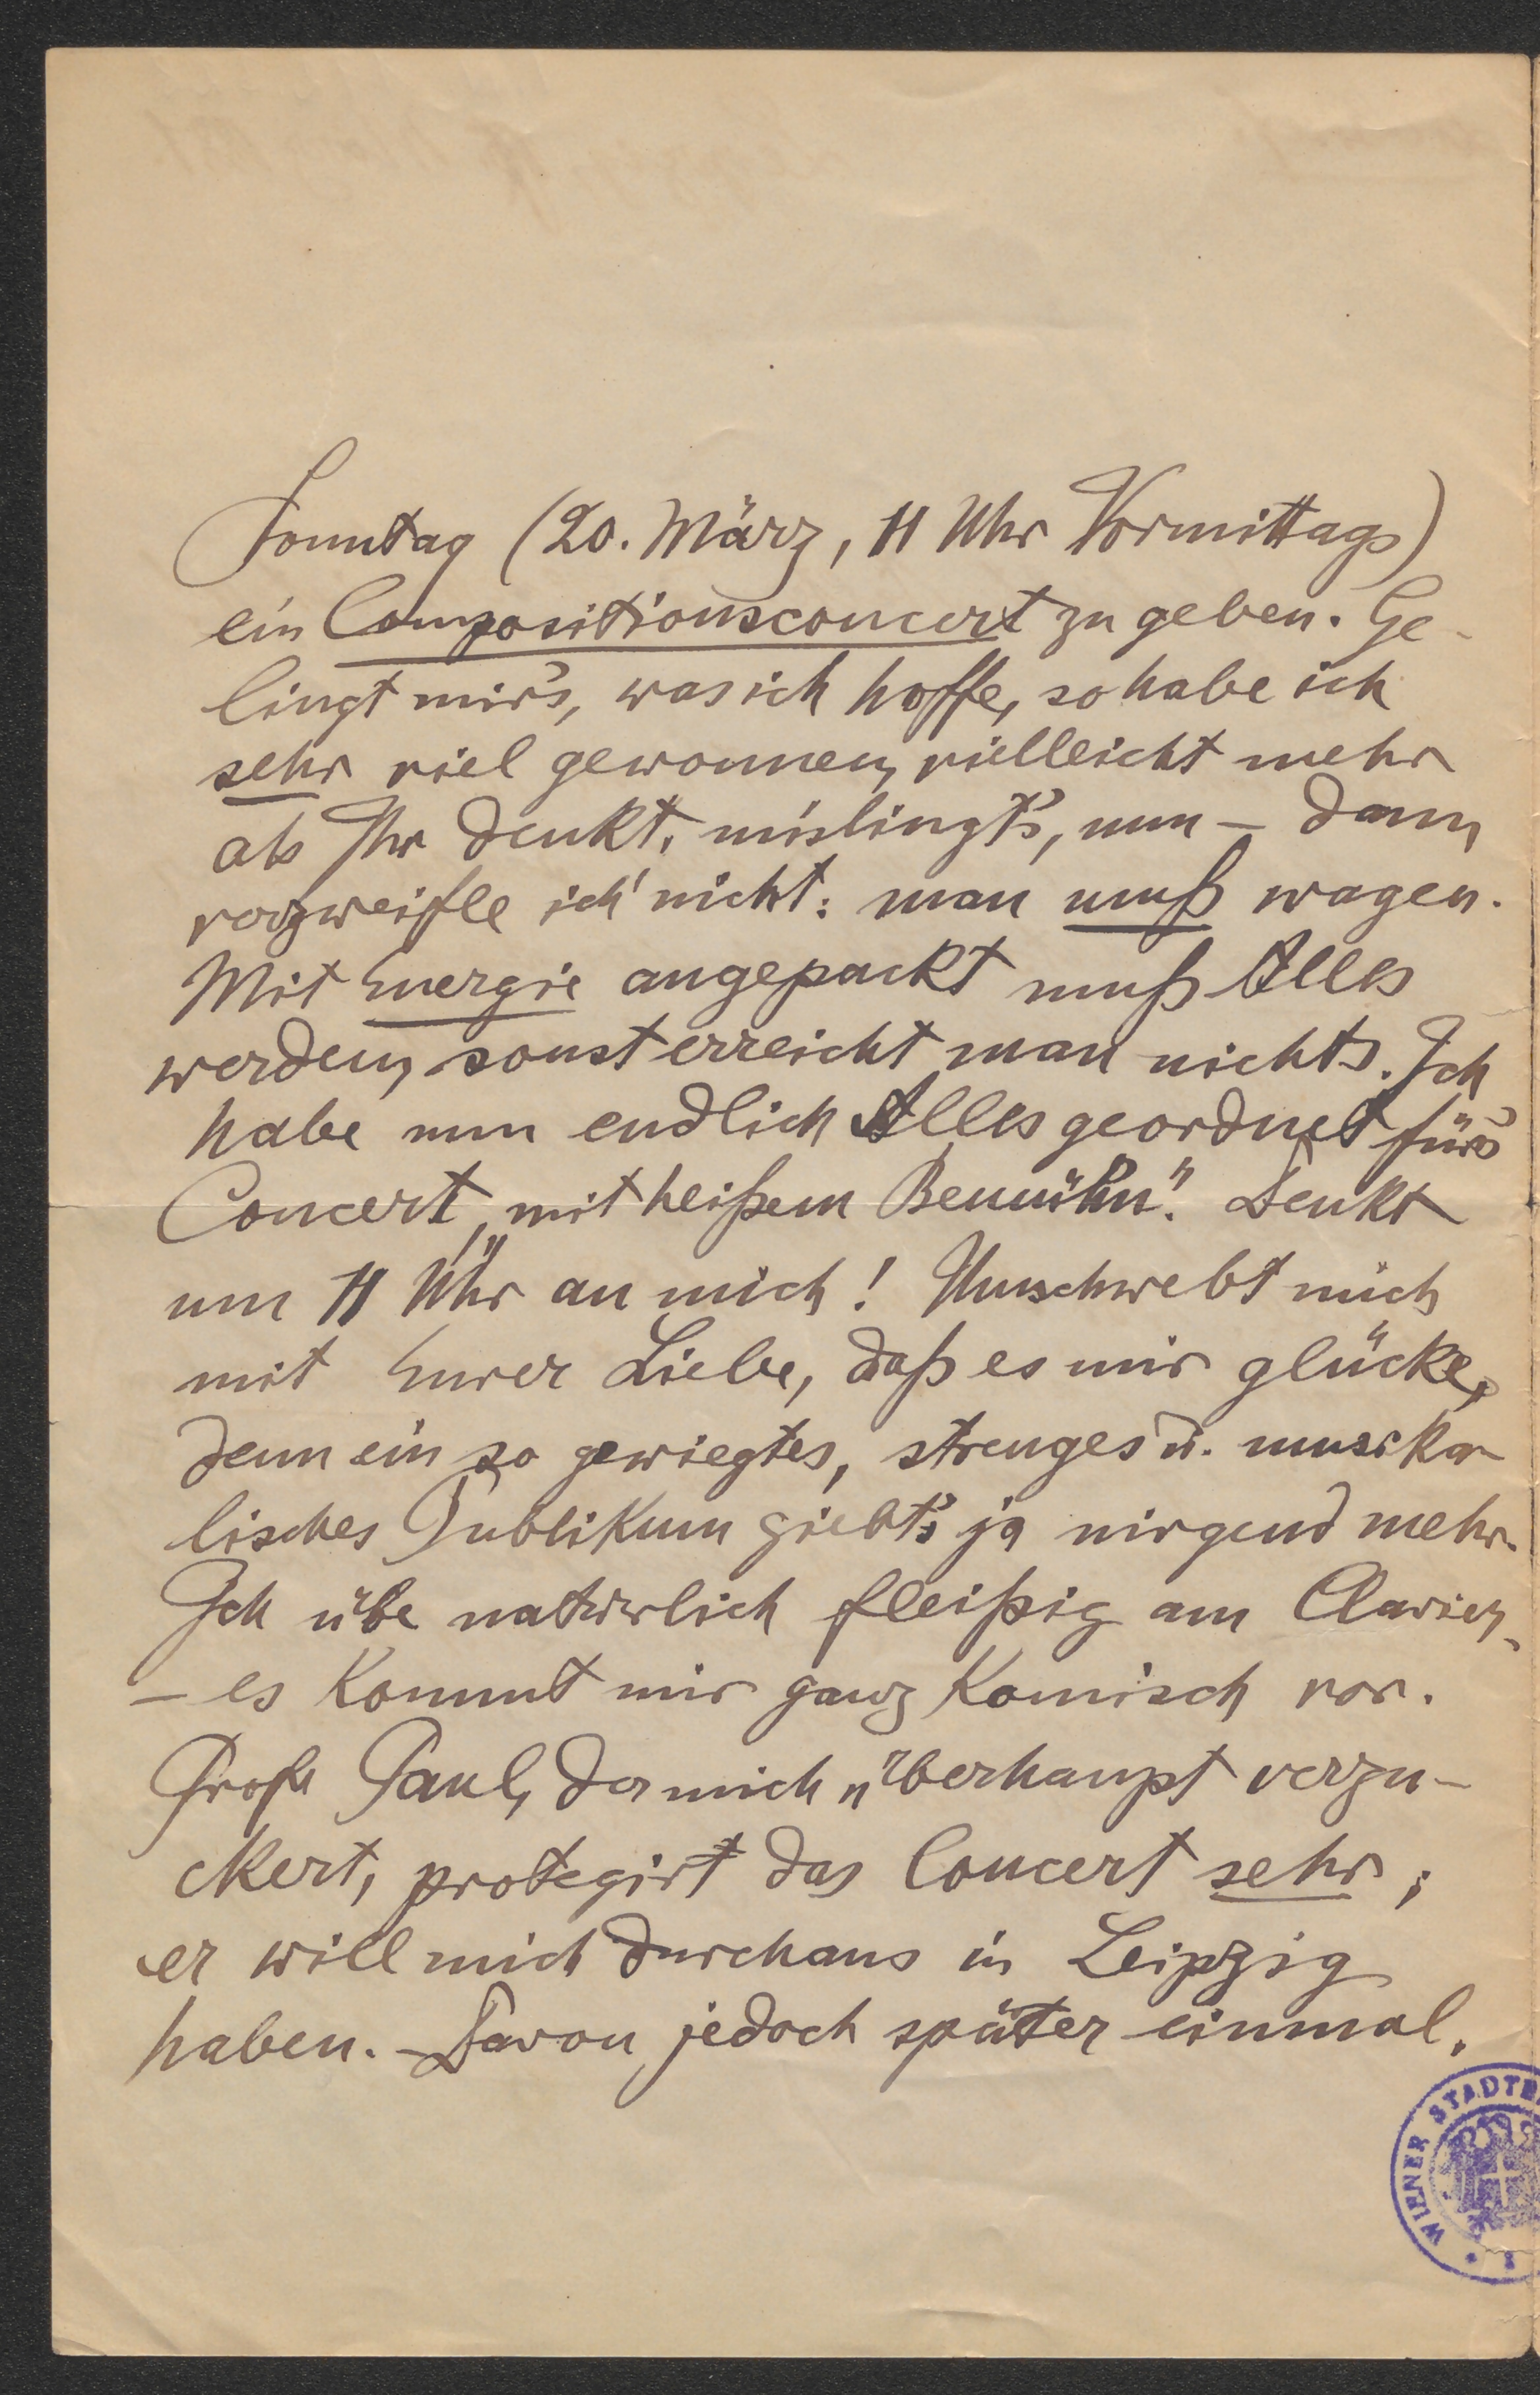 Sonntag (20. März, 11 Uhr Vormittags)
ein Compositionsconcert zu geben. Ge-
lingt mir's, was ich hoffe, so habe ich
sehr viel gewonnen, vielleicht mehr
als Ihr denkt, mislingt's, nun – dann
verzweifle ich nicht: man muß wagen.
Mit Energie angepackt muß Alles
werden, sonst erreicht man nichts. Ich
habe nun endlich Alles geordnet für's
Concert „mit heißem Bemühn". Denkt
um 11 Uhr an mich! Umschwebt mich
mit Eurer Liebe, daß es mir glücke,
denn ein so gewiegtes, strenges u. musika-
lisches Publikum giebt's ja nirgend mehr.
Ich übe natürlich fleißig am Clavier,
– es kommt mir ganz komisch vor.
Profr Paul, der mich überhaupt verzu-
ckert, protegirt das Concert sehr;
er will mich durchaus in Leipzig
haben. – Davon jedoch später einmal.
WIENER STADTB